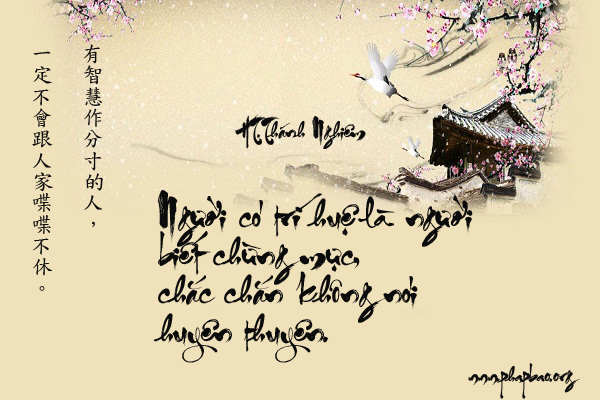 有智慧作分寸的人，
一定不會跟人家喋喋不休。
HT.Thánh Nghiêm
Người có trí huệ là người
biết chừng mực,
chắc chắn không nói
huyên thuyên.
www.phapbao.org